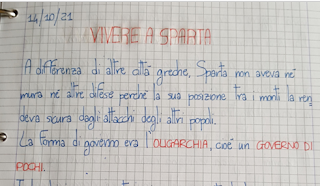 14/10/21
VIVERE A SPARTA
A differenza di altre città greche, Sparta non aveva né
mura né altre difese perché la sua posizione tra i monti la ren
deva sicura dagli attacchi degli altri popoli.
La forma di governo era l'OLIGARCHIA, cioè un GOVERNO DI
POCHI.